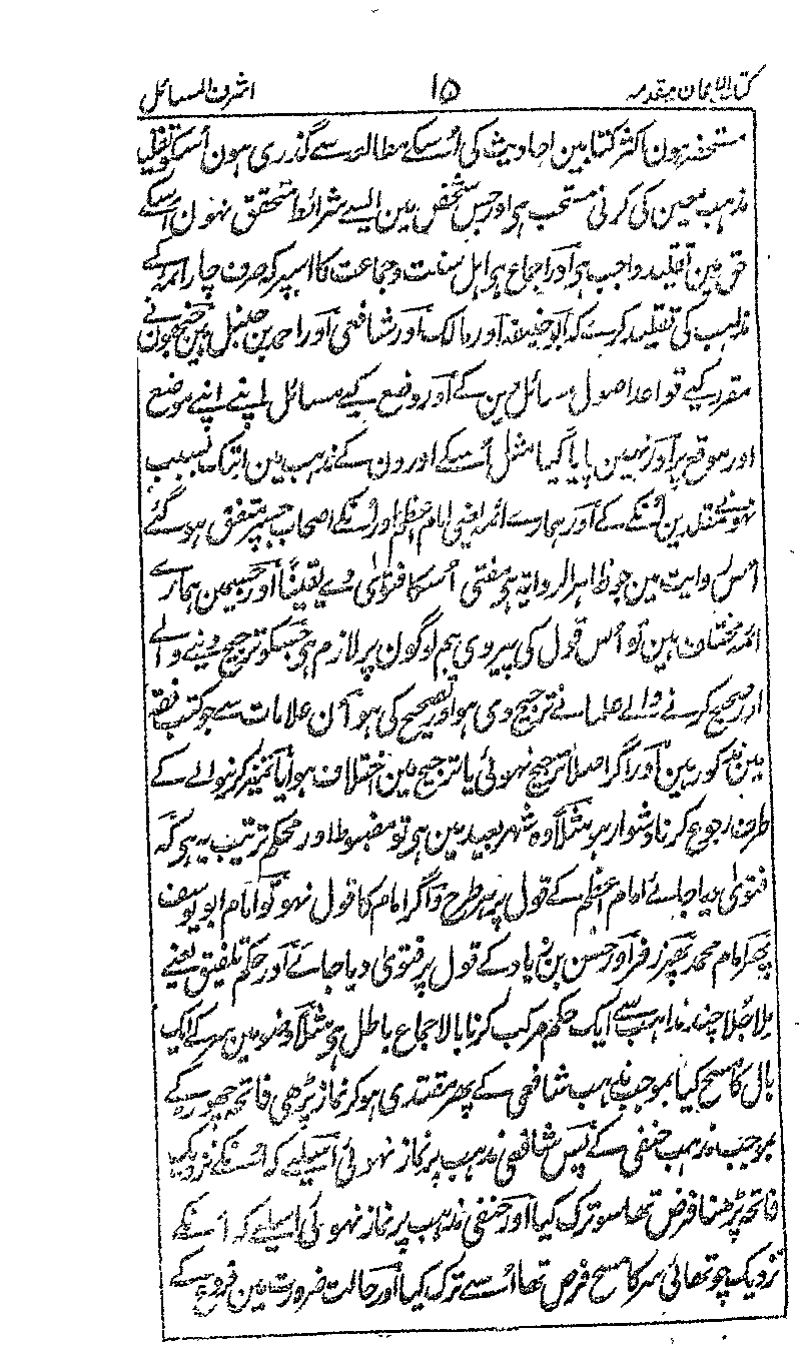 کتاب الایمان مقدمہ ۱۵ اشرف المسائل
مستحضر ہون اکثر کتابین احادیث کی اُسکے مطالعہ سے گذری ہون اُسکو تقلید
مذہب معین کی کرنی مستحب ہی اور جس شخص مین ایسے شرائط متحقق نہون اُسکے
حق مین تقلید واجب ہی اور اجماع ہی اہل سنت وجماعت کا اسپر کہ صرف چار ائمہ کے
مذہب کی تقلید کرے کہ ابو حنیفہ اور مالک اور شافعی اور احمد بن حنبل ہین جنھون نے
مقرر کیے قواعد اصول مسائل دین کے اور وضع کیے مسائل اپنے اپنے موضع
اور موقع پر اور نہین پایا گیا مثل اُسکے اورون کے مذہب مین ابتک بسبب
نہونے مقلدین اُنکے کے اور ہمارے ائمہ یعنی امام اعظم اور اُنکے اصحاب جسپر متفق ہو گئے
اُس روایت مین جو ظاہر الروایۃ ہی مفتی اُسکا فتویٰ دے یقیناً اور جسمین ہمارے
ائمہ مختلف ہین تو اُس قول کی پیروی ہم لوگون پر لازم ہی جسکو ترجیح دینے والے
اور صحیح کرنے والے علما نے ترجیح دی ہو اور تصحیح کی ہو اُن علامات سے جو کتب فقہ
مین مذکور ہین اور اگر اصلا ترجیح نہوئی یا ترجیح مین اختلاف ہو یا تمیز کرنیوالے کے
طرف رجوع کرنا دشوار ہو مثلاً وہ شہر بعید مین ہی تو مضبوط اور محکم ترتیب یہ ہی کہ
فتویٰ دیا جائے امام اعظم کے قول پر ہر طرح واگر امام کا قول نہو تو امام ابو یوسف
پھر امام محمد پھر زفر اور حسن بن زیاد کے قول پر فتویٰ دیا جائے اور حکم تلفیق یعنے
ملا جُلا چند مذاہب سے ایک حکم مرکب کرنا بالاجماع باطل ہی مثلاً وضو مین سر کے ایک
بال کا مسح کیا بموجب مذہب شافعی کے پھر مقتدی ہو کر نماز پڑھی فاتحہ چھوڑ کے
بموجب مذہب حنفی کے پس شافعی مذہب پر نماز نہوئی اسلیے کہ اُنکے نزدیک
فاتحہ پڑھنا فرض تھا سو ترک کیا اور حنفی مذہب پر نماز نہوئی اسلیے کہ اُنکے
نزدیک چوتھائی سر کا مسح فرض تھا اُسے ترک کیا اور حالت ضرورت مین فروع کے